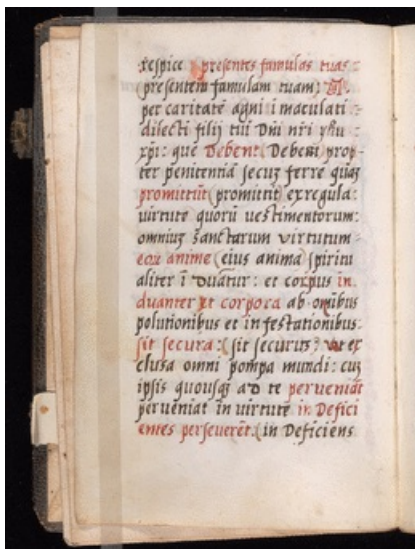 respice presentes famulas tuas
(presentem famulam tuam)
per caritatē agni īmaculati
dilecti filij tui Dnī nrī yħu
xpī: quē Debent (Debem prop
ter penitentiā secuʒ ferre quāʒ
promittūt (promittit) ex regula:
uirtute quorū uestimentorum:
omniuʒ sanctarum virtutum
eaꝝ anime (eius anima) spiritu
aliter ī duātur: et corpus in
duanter et corpora ab omībus
polutionibus et infestationibus:
sit secura: (sit securus) ut ex
clusa omni pompa mundi: cuʒ
ipsis quousqʒ ad te perveniāt
perveniat in uirtutē in Defici
entes perseverēt (in Deficiens